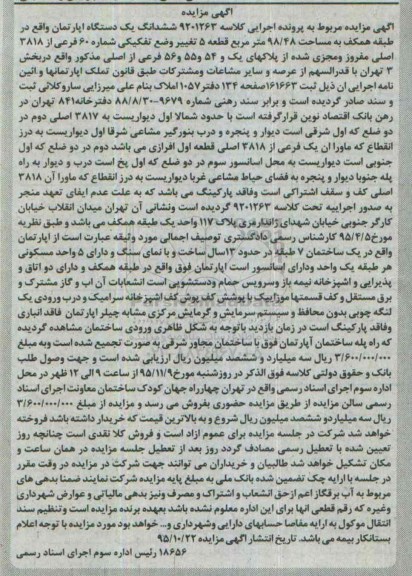 آگهی مزایده
آگهی مزایده مربوط به پرونده اجرایی کلاسه ۹۲۰۱۲۶۳ ششدانگ یک دستگاه آپارتمان واقع در
طبقه همکف به مساحت ۹۸/۴۸ متر مربع قطعه ۵ تغییر وضع تفکیکی شماره ۶۰ فرعی از ۳۸۱۸
اصلی مفروز ومجزی شده از پلاکهای یک و ۵۴ و۵۵ و۵۶ فرعی از اصلی مذکور واقع دربخش
۳ تهران با قدرالسهم از عرصه و سایر مشاعات ومشترکات طبق قانون تملک آپارتمانها و آئین
نامه اجرایی ان ذیل ثبت ۱۶۱۶۶۳صفحه ۱۳۴ دفتر۱۰۵۷املاک بنام علی میرزایی ساروکلائی ثبت
و سند صادر گردیده است و برابر سند رهنی شماره ۹۶۷۹-۸۸/۸/۳۰ دفترخانه۸۴۱ تهران در
رهن بانک اقتصاد نوین قرارگرفته است با حدود شمالا اول دیواریست به ۳۸۱۷ اصلی دوم در
دو ضلع که اول شرقی است دیوار و پنجره و درب بنورگیر مشاعی شرقا اول دیواریست به درز
انقطاع که ماورا ان یک فرعی از ۳۸۱۸ اصلی قطعه اول افرازی می باشد دوم در دو ضلع که اول
جنوبی است دیواریست به محل اسانسور سوم در دو ضلع که اول پخ است درب و دیوار به راه
پله جنوبا دیوار و پنجره به فضای حیاط مشاعی غربا دیواریست به درز انقطاع که ماورا آن ۳۸۱۸
اصلی کف و سقف اشتراکی است وفاقد پارکینگ می باشد که به علت عدم ایفای تعهد منجر
به صدور اجراییه تحت کلاسه ۹۲۰۱۲۶۳ گردیده است ونشانی آن تهران میدان انقلاب خیابان
کارگر جنوبی خیابان شهدای ژاندارمری پلاک ۱۱۷ واحد یک طبقه همکف می باشد و طبق نظریه
مورخ۹۵/۴/۵ کارشناس رسمی دادگستری توصیف اجمالی مورد وثیقه عبارت است از آپارتمان
واقع در یک ساختمان ۷ طبقه در حدود ۱۳سال ساخت و با نمای سنگ و دارای ۵ واحد مسکونی
هر طبقه یک واحد ودارای آسانسور است آپارتمان فوق واقع در طبقه همکف و دارای دو اتاق و
پذیرایی و اشپزخانه نیمه باز وسرویس حمام ودستشویی است انشعابات آن آب و گاز مشترک و
برق مستقل و کف قسمتها موزاییک با پوشش کف پوش کف اشپزخانه سرامیک و درب ورودی یک
لنگه چوبی بدون محافظ و سیستم سرمایش و گرمایش مرکزی مشابه چیلر آپارتمان فاقد انباری
وفاقد پارکینگ است در زمان بازدید باتوجه به شکل ظاهری ورودی ساختمان مشاهده گردیده
که راه پله ساختمان آپارتمان فوق با ساختمان مجاور شرقی به صورت تجمیع شده است وبه مبلغ
۳/۶۰۰/۰۰۰/۰۰۰ ریال سه میلیارد و ششصد میلیون ریال ارزیابی شده است و جهت وصول طلب
بانک و حقوق دولتی کلاسه فوق الذکر در روزشنبه مورخ۹۵/۱۱/۹ از ساعت ۹ الی ۱۲ ظهر در محل
اداره سوم اجرای اسناد رسمی واقع در تهران چهارراه جهان کودک ساختمان معاونت اجرای اسناد
رسمی سالن مزایده از طریق مزایده حضوری بفروش می رسد و مزایده از مبلغ ۳/۶۰۰/۰۰۰/۰۰۰
ریال سه میلیاردو ششصد میلیون ریال شروع و به بالاترین قیمت که خریدار داشته باشد فروخته
خواهد شد شرکت در جلسه مزایده برای عموم ازاد است و فروش کلا نقدی است چنانچه روز
تعیین شده با تعطیل رسمی مصادف گردد روز بعد از تعطیل جلسه مزایده در همان ساعت و
مکان تشکیل خواهد شد طالبیان و خریداران می توانند جهت شرکت در مزایده در وقت مقرر
در جلسه با ارایه چک تضمین شده بانک ملی به مبلغ پایه مزایده شرکت نمایند ضمنا بدهی های
مربوط به آب برقگاز اعم ازحق انشعاب و اشتراک و مصرف ونیز بدهی مالیاتی و عوارض شهرداری
وغیره که رقم قطعی انها برای این اداره معلوم نشده باشد بعهده برنده مزایده است وتنظیم سند
انتقال موکول به ارایه مفاصا حسابهای دارایی وشهرداری و... خواهد بود مورد مزایده با توجه اعلام
بستانکار بیمه می باشد. تاریخ انتشار آگهی مزایده ۹۵/۱۰/۲۲
۱۸۶۵۶ رئیس اداره سوم اجرای اسناد رسمی